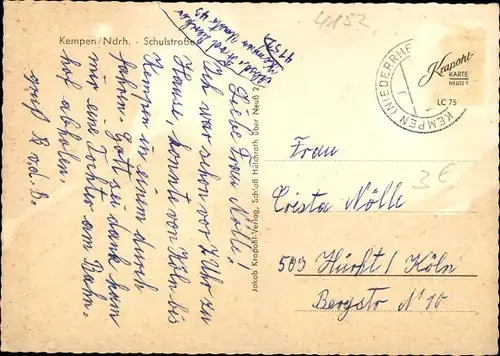 Kempen/Ndrh. - Schulstraße
4152
Liebe Frau Nölle!
Ich war schon vor 7 Uhr zu
Hause, konnte von Köln bis
Kempen in einem durch
fahren. Gott sei dank kam
mir eine Tochter am Bahn-
hof abholen.
Gruß
4152
Jakob Krapohl-Verlag, Schloß Hülchrath über Neuß 2
KEMPEN (NIEDERRHE
Krapohl-
KARTE
NEUSS 2
LC 75
3€
Frau
Crista Nölle
503 Hürth/Köln
Bergstr N° 10